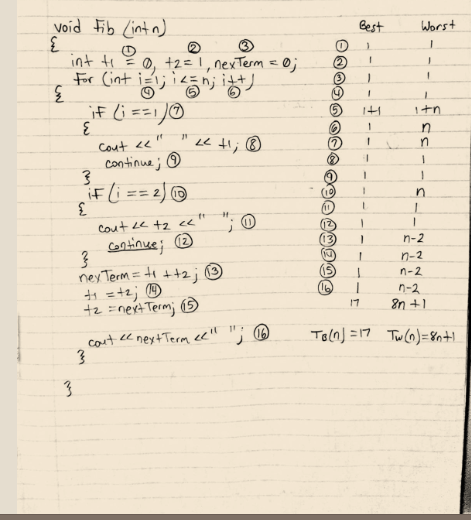 Best Worst
void Fib (int n)
{
① ② ③
int t1 = 0, t2=1, nexTerm = 0;
For (int i=1; i<=n; i++)
④ ⑤ ⑥
{
if (i==1) ⑦
{
cout << " " << t1; ⑧
continue; ⑨
}
if (i == 2) ⑩
{
cout << t2 << " "; ⑪
continue; ⑫
}
nexTerm = t1 + t2; ⑬
t1 = t2; ⑭
t2 = nextTerm; ⑮
cout << nextTerm << " "; ⑯
}
}
① 1 1
② 1 1
③ 1 1
④ 1 1
⑤ 1+1 1+n
⑥ 1 n
⑦ 1 n
⑧ 1 1
⑨ 1 1
⑩ 1 n
⑪ 1 1
⑫ 1 1
⑬ 1 n-2
⑭ 1 n-2
⑮ 1 n-2
⑯ 1 n-2
17 8n+1
TB(n)=17 Tw(n)=8n+1